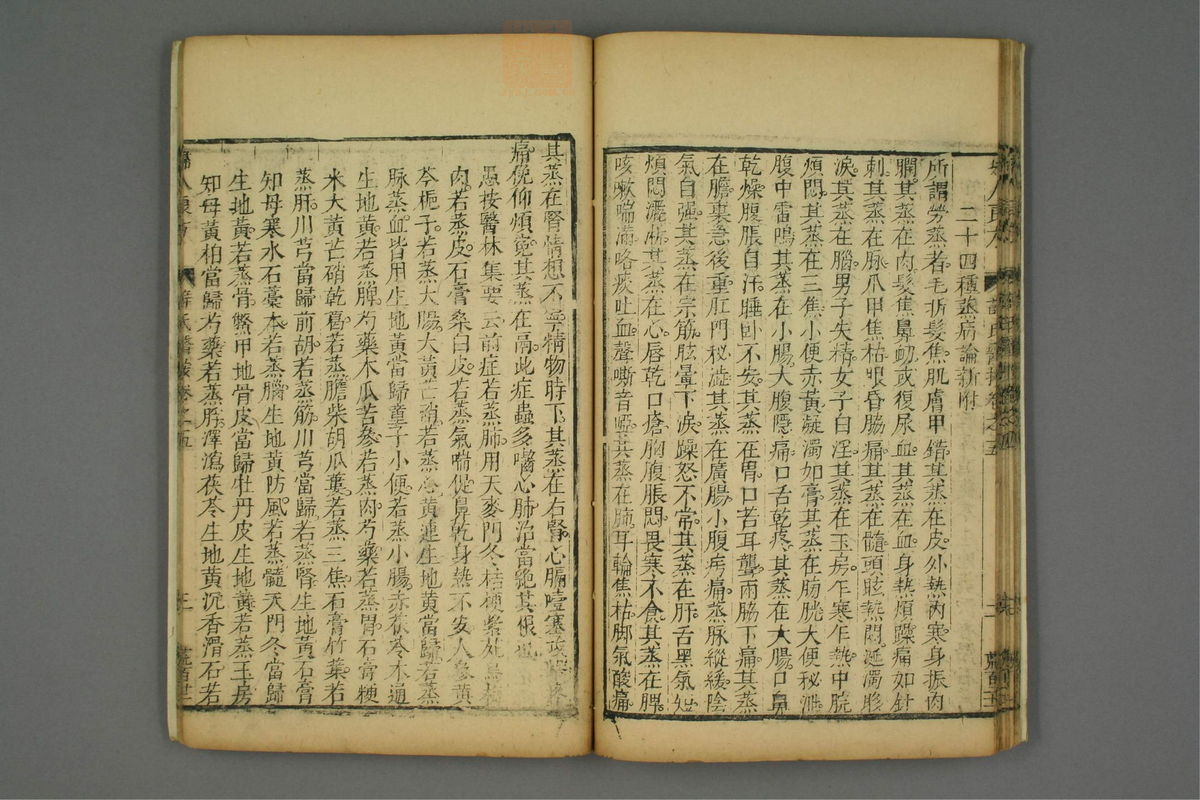 二十四種蒸病論新附
所謂勞蒸者毛折髮焦肌膚甲錯其蒸在皮外熱內寒身振肉
瞤其蒸在肉髮焦鼻衂或復尿血其蒸在血身熱煩躁痛如針
刺其蒸在脉爪甲焦枯眼昏脇痛其蒸在髓頭眩熱悶涎濁眵
淚其蒸在腦男子失精女子白淫其蒸在玉房乍寒乍熱中脘
煩悶其蒸在三焦小便赤黃凝濁如膏其蒸在膀胱大便秘泄
腹中雷鳴其蒸在小腸大腹隱痛口舌乾疼其蒸在大腸口鼻
乾燥腹脹自汗睡卧不安其蒸在胃口苦耳聾兩脇下痛其蒸
在膽裏急後重肛門秘澁其蒸在廣腸小腹疞痛蒸脉縱緩陰
氣自强其蒸在宗筋眩暈下淚躁怒不常其蒸在肝舌黑氣短
煩悶灑淅其蒸在心唇乾口瘡胸腹脹悶畏寒不食其蒸在脾
咳嗽喘滿咯痰吐血聲嘶音啞其蒸在肺耳輪焦枯脚氣酸痛
其蒸在腎情想不寧精物時下其蒸在右腎心膈噎塞
痛俛仰煩寃其蒸在膈此症蟲多嚙心肺治當絶其根也
愚按醫林集要云前症若蒸肺用天麥門冬桔梗紫苑烏梅
肉若蒸皮石膏桑白皮若蒸氣喘促鼻乾身熱不安人參黃
芩梔子若蒸大腸大黃芒硝若蒸心黃連生地黃當歸若蒸
脉蒸血皆用生地黃當歸童子小便若蒸小腸赤茯苓木通
生地黃若蒸脾芍藥木瓜苦參若蒸肉芍藥若蒸胃石膏粳
米大黃芒硝乾葛若蒸膽柴胡瓜蔞若蒸三焦石膏竹葉若
蒸肝川芎當歸前胡若蒸筋川芎當歸若蒸腎生地黃石膏
知母寒水石藁本若蒸腦生地黃防風若蒸髓天門冬當歸
生地黃若蒸骨鱉甲地骨皮當歸牡丹皮生地黃若蒸玉房
知母黃柏當歸芍藥若蒸胻澤瀉茯苓生地黃沉香滑石若
婦人良方
薛氏醫按卷之五
三